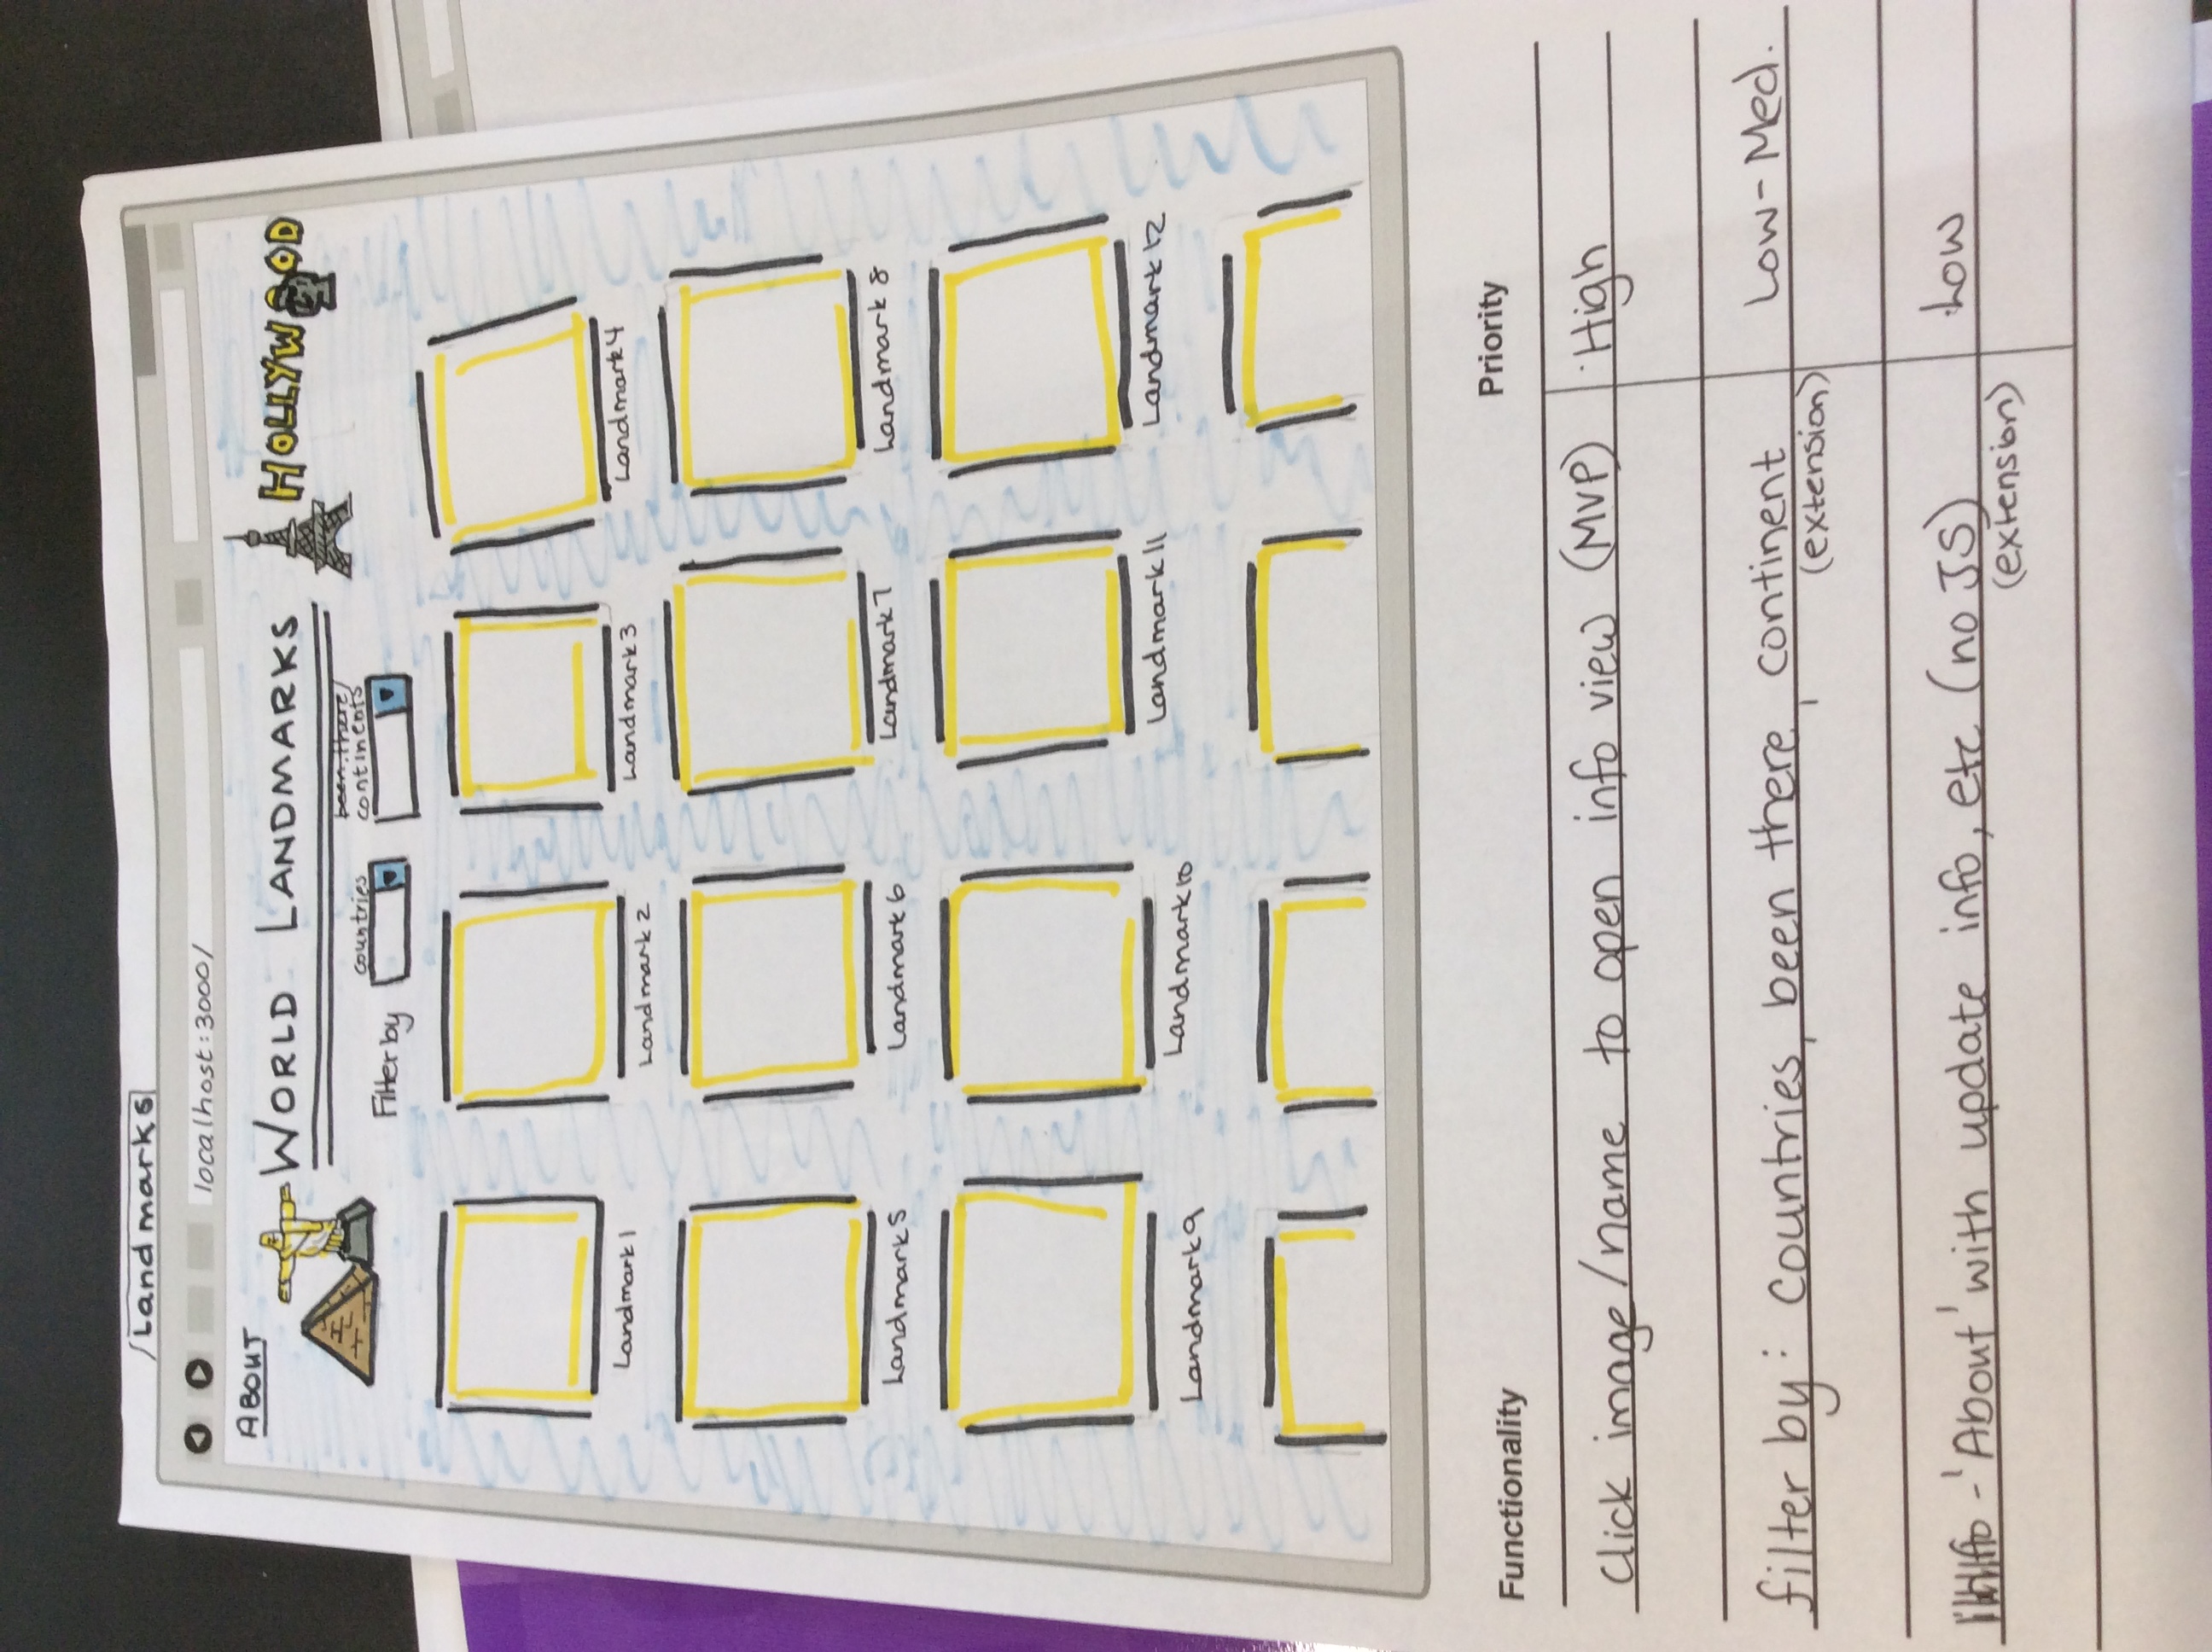 /Landmarks
localhost:3000/
ABOUT
WORLD LANDMARKS
HOLLYWOOD
been there/
countries continents
Filter by
Landmark 1 Landmark 2 Landmark 3 Landmark 4
Landmark 5 Landmark 6 Landmark 7 Landmark 8
Landmark 9 Landmark 10 Landmark 11 Landmark 12
Functionality Priority
Click image/name to open info view (MVP) High
filter by: Countries, been there, continent Low-Med.
(extension)
- 'About' with update info, etc (no JS) Low
(extension)